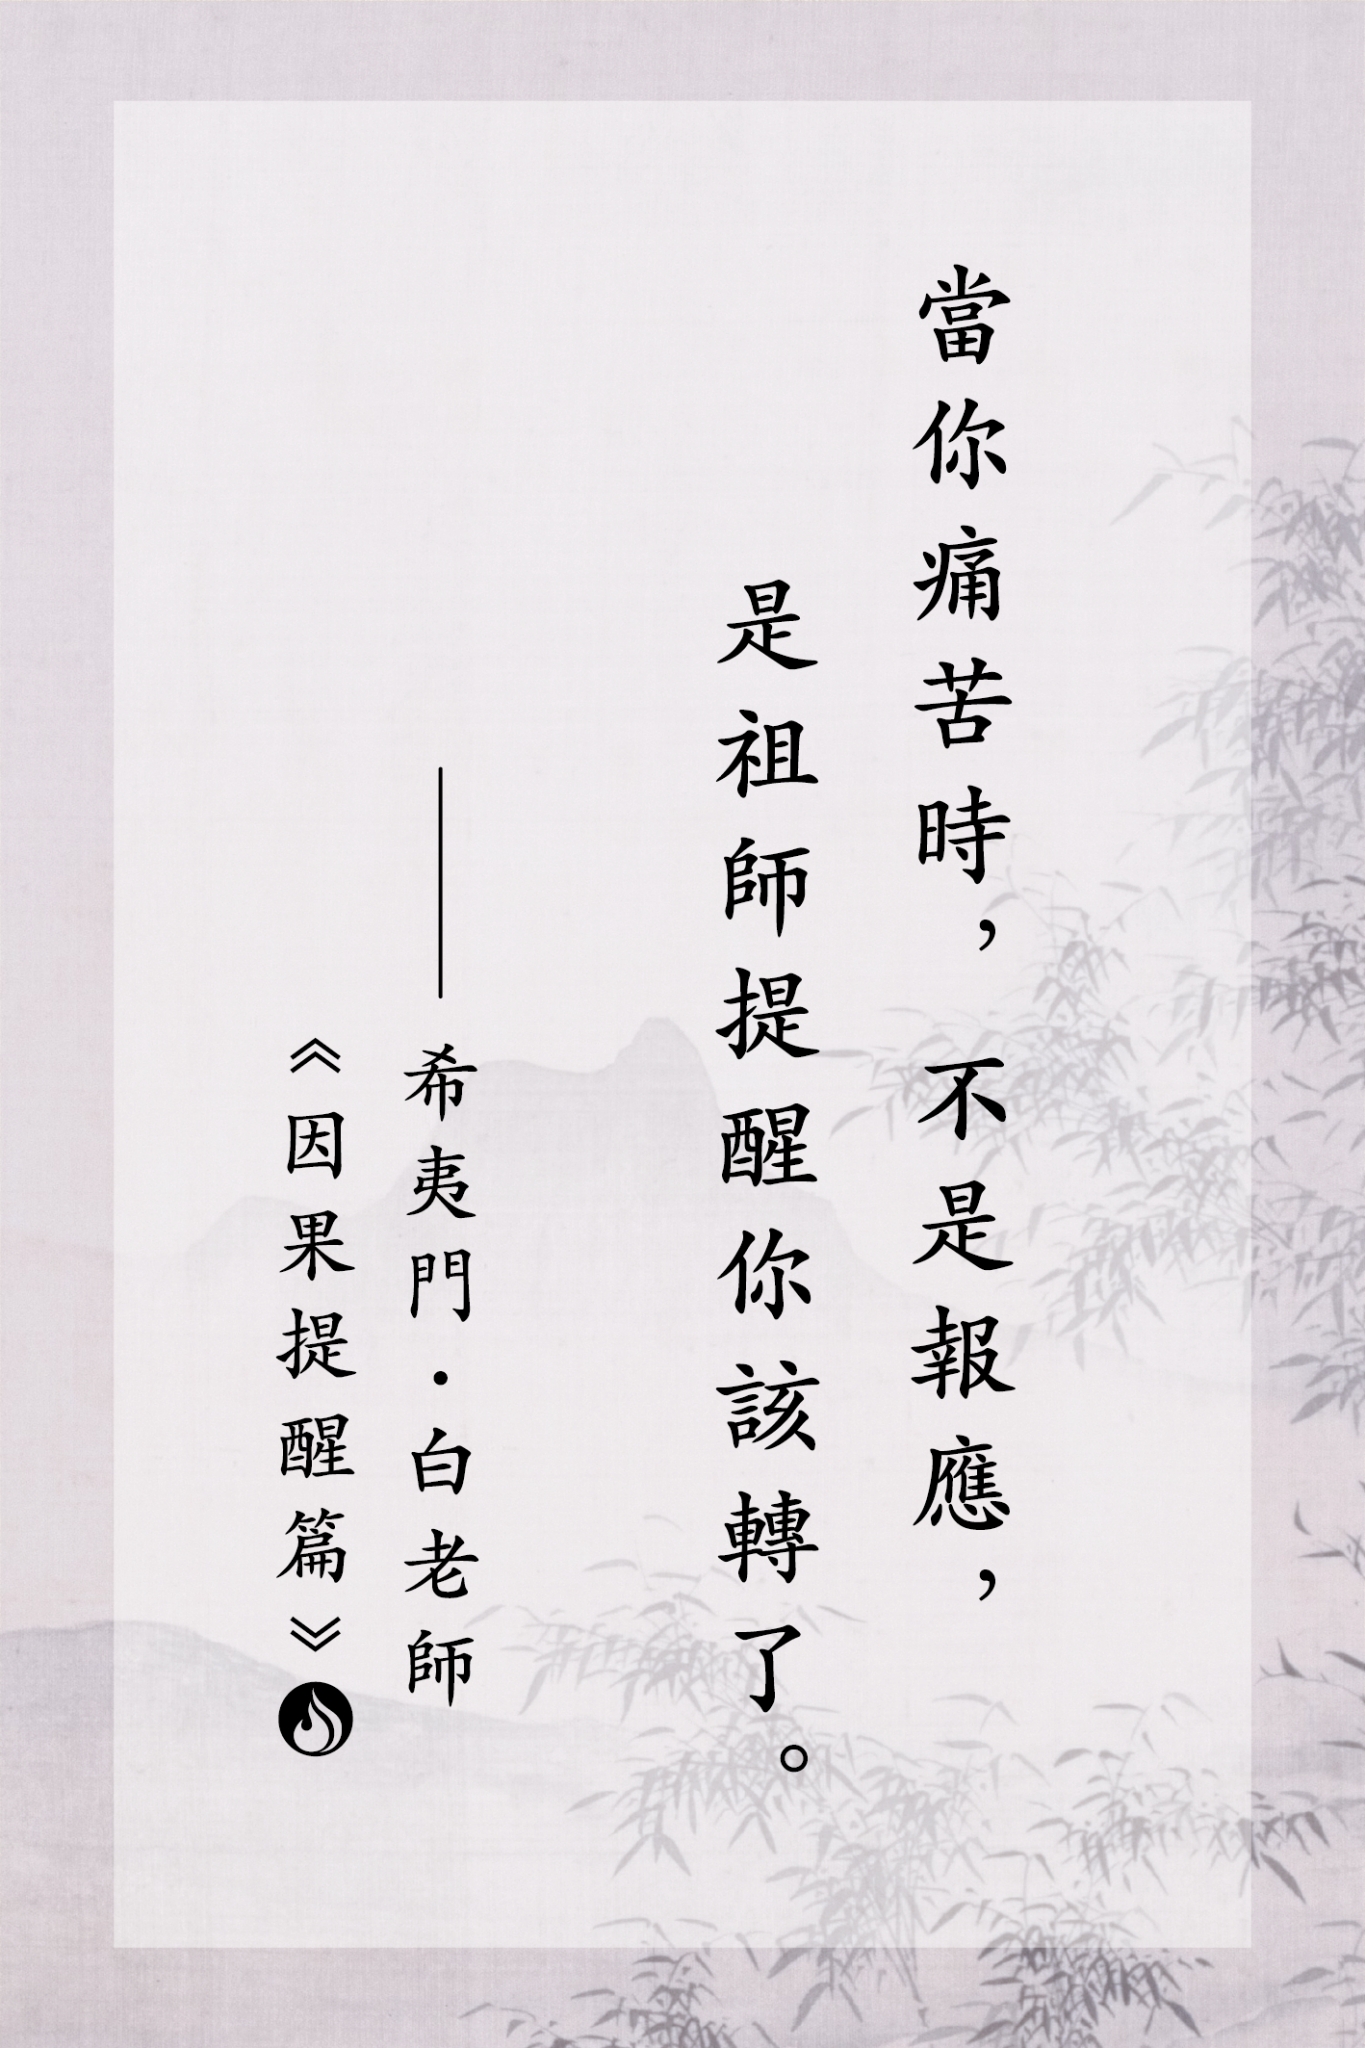 當你痛苦時，不是報應，
是祖師提醒你該轉了。
——希夷門·白老師
《因果提醒篇》